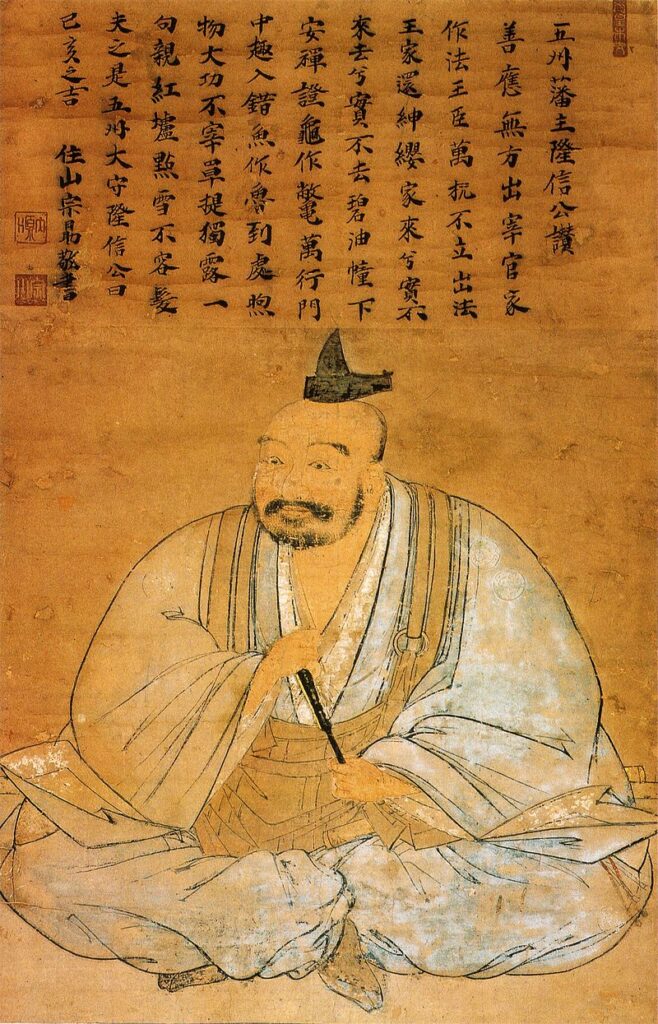 五州藩主隆信公讃
善應無方出宰官家
作法王臣萬机不立出法
王家還紳纓家来兮實不
来去兮實不去碧油幢下
安禪證龜作鼈萬行門
中趣入錯魚作魯到處煦
物大功不宰單提獨露一
句親紅爐點雪不容髪
夫之是五州大守隆信公曰
己亥之吉 住山宗昜敬書